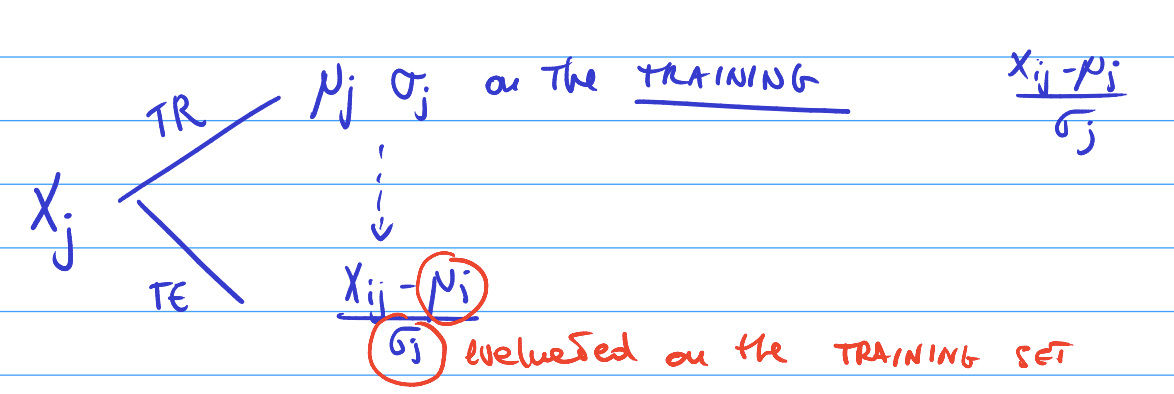 μj σj on the TRAINING
Xij - μj
σj
TR
Xj
TE
Xij - μi
σj evaluated on the TRAINING SET